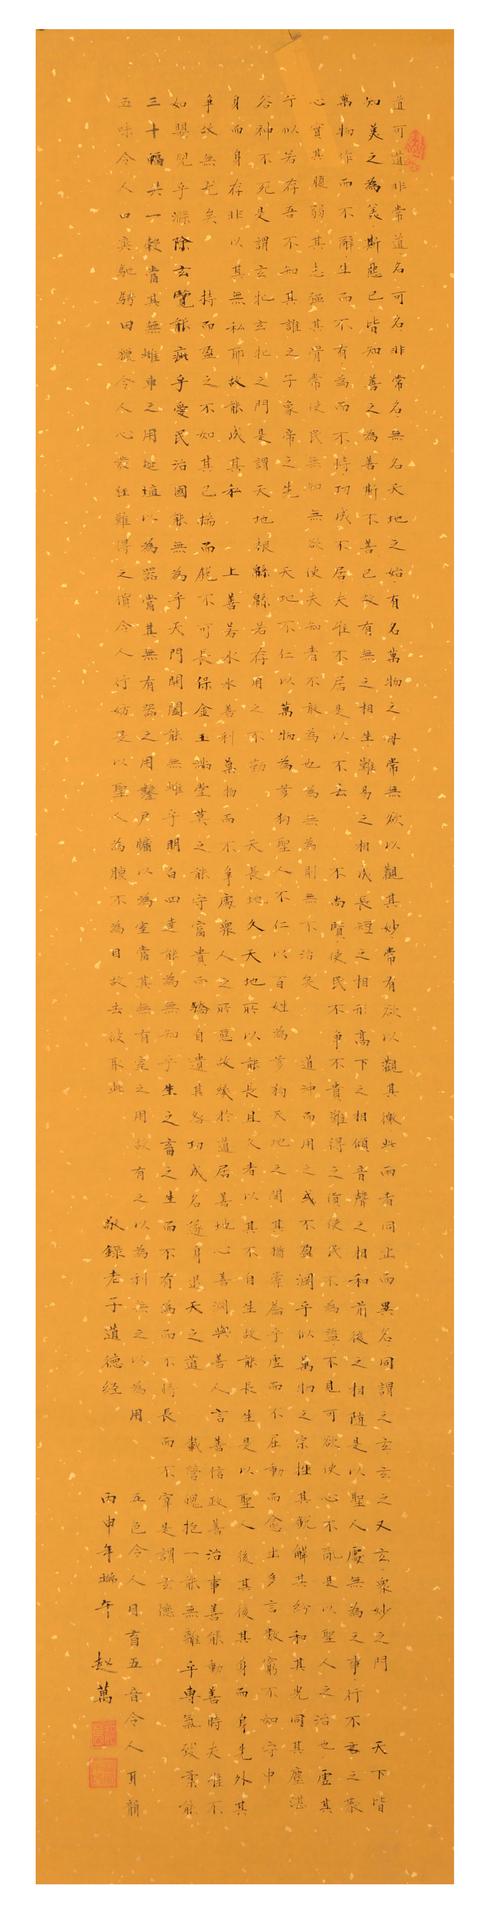 道可道非常道名可名非常名無名天地之始有名萬物之母常無欲以觀其妙常有欲以觀其徼此兩者同出而異名同謂之玄玄之又玄衆妙之門 天下皆
知美之為美斯惡已皆知善之為善斯不善已故有無之相生難易之相成長短之相形高下之相傾音聲之相和前後之相隨是以聖人處無為之事行不言之教
萬物作而不辭生而不有為而不恃功成不居夫惟不居是以不去 不尚賢使民不爭不貴難得之貨使民不為盜不見可欲使心不亂是以聖人之治也虛其
心實其腹弱其志強其骨常使民無知無欲使夫知者不敢為也為無為則無不治矣 道沖而用之或不盈淵乎似萬物之宗挫其銳解其紛和其光同其塵湛
兮似若存吾不知其誰之子象帝之先 天地不仁以萬物為芻狗聖人不仁以百姓為芻狗天地之間其猶橐籥乎虛而不屈動而愈出多言數窮不如守中
谷神不死是謂玄牝玄牝之門是謂天地根綿綿若存用之不勤 天長地久天地所以能長且久者以其不自生故能長生是以聖人後其後其身而身先外其
身而身存非以其無私耶故能成其私 上善若水水善利萬物而不爭處衆人之所惡故幾於道居善地心善淵與善人言善信政善治事善能動善時夫惟不
爭故無尤矣 持而盈之不如其已揣而銳不可長保金玉滿堂莫之能守富貴而驕自遺其咎功成名遂身退天之道 載營魄抱一能無離乎專氣致柔能
如嬰兒乎滌除玄覽能疵乎愛民治國能無為乎天門開闔能無雌乎明白四達能為無知乎生之畜之生而不有為而不恃長而不宰是謂玄德
三十輻共一轂當其無車之用埏埴以為器當其無有器之用鑿戶牖以為室當其無有室之用故有之以為利無之以為用 五色令人目盲五音令人耳聾
五味令人口爽馳騁田獵令人心發狂難得之貨令人行妨是以聖人為腹不為目故去彼取此
敬錄老子道德經 丙申年端午 赵萬